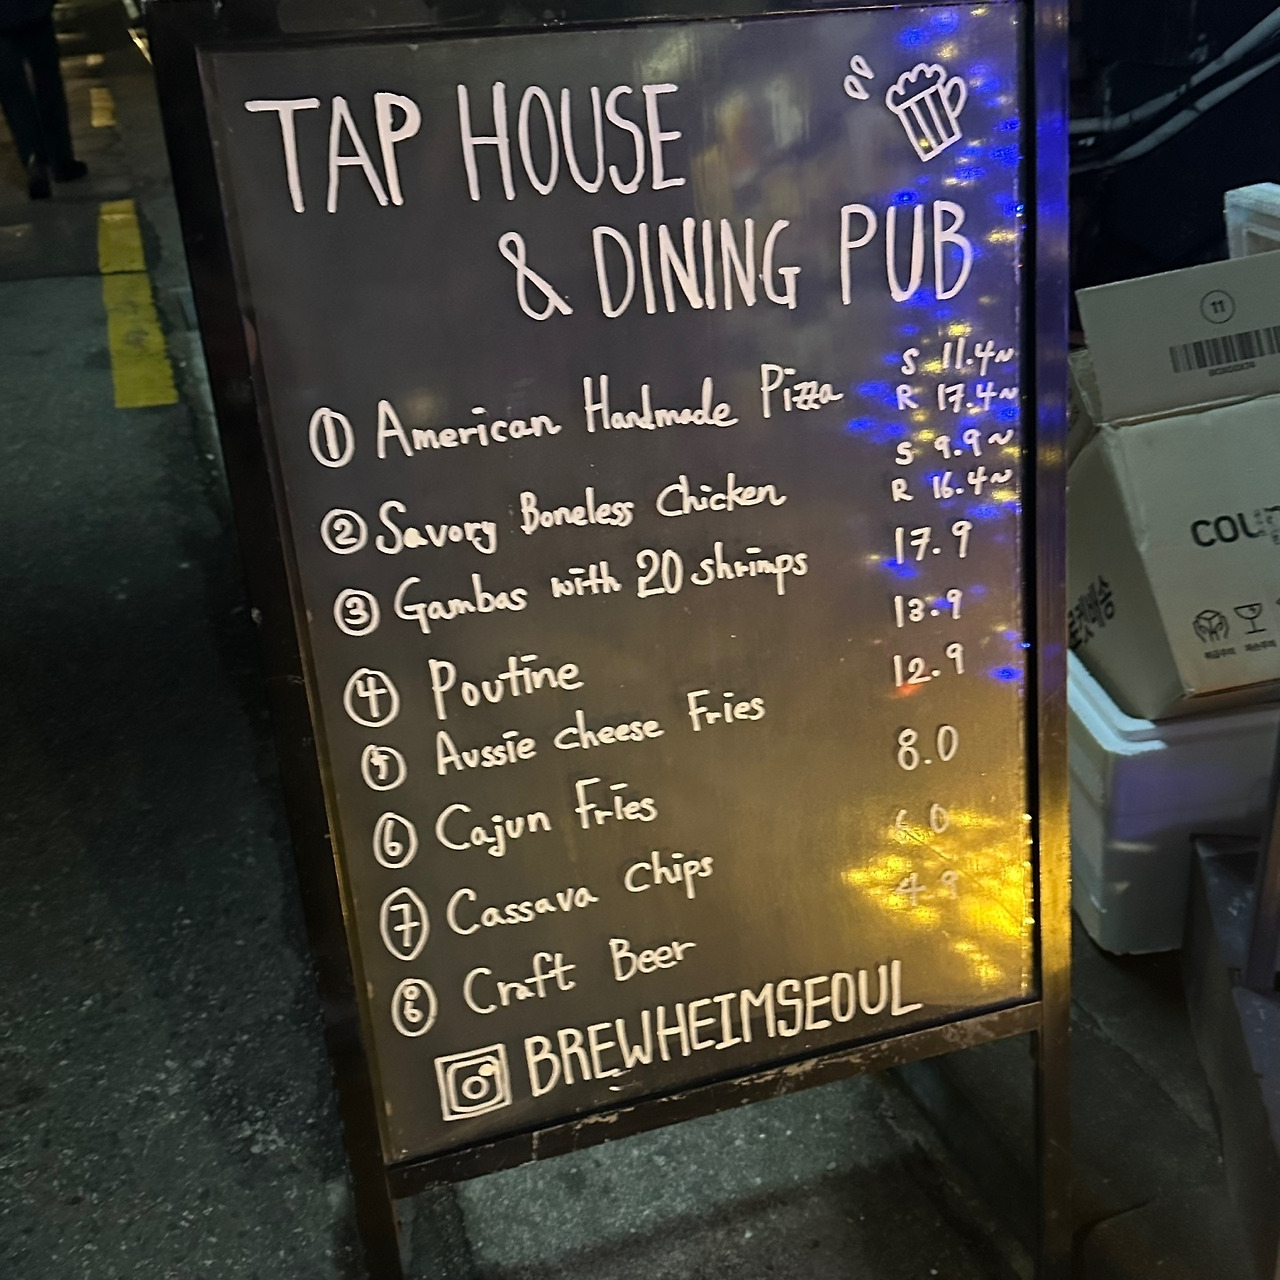 TAP HOUSE
& DINING PUB
① American Handmade Pizza S 11.4~
R 17.4~
② Savory Boneless Chicken S 9.9~
R 16.4~
③ Gambas with 20 shrimps 17.9
④ Poutine 13.9
⑤ Aussie cheese Fries 12.9
⑥ Cajun Fries 8.0
⑦ Cassava Chips 6.0
⑧ Craft Beer 4.9
BREWHEIMSEOUL
11
COU
로켓배송